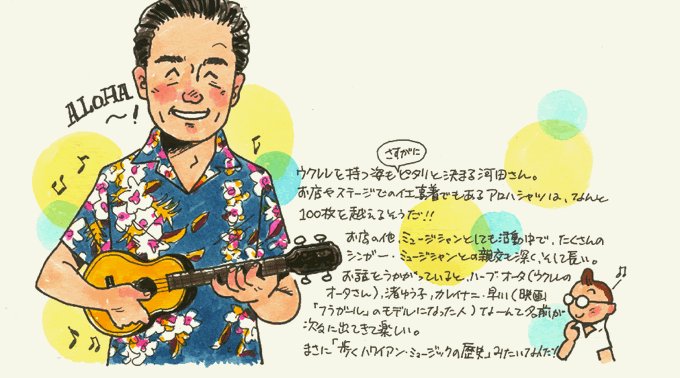 ALOHA
〜!
さすがに
ウクレレを持つ姿もピタリと決まる河田さん。
お店やステージでの仕事着でもあるアロハシャツは、なんと
100枚を越えるそうだ!!
お店の他、ミュージシャンとしても活動中で、たくさんの
シンガー・ミュージシャンとの親交も深く、そして長い。
お話をうかがっていると、ハーブ・オータ(ウクレレの
オータさん)、渚ゆう子、カレイナニ・早川(映画
「フラガール」のモデルになった人)なーんて名前が
次々に出てきて楽しい。
まさに「歩くハワイアン・ミュージックの歴史」みたいなんだ!